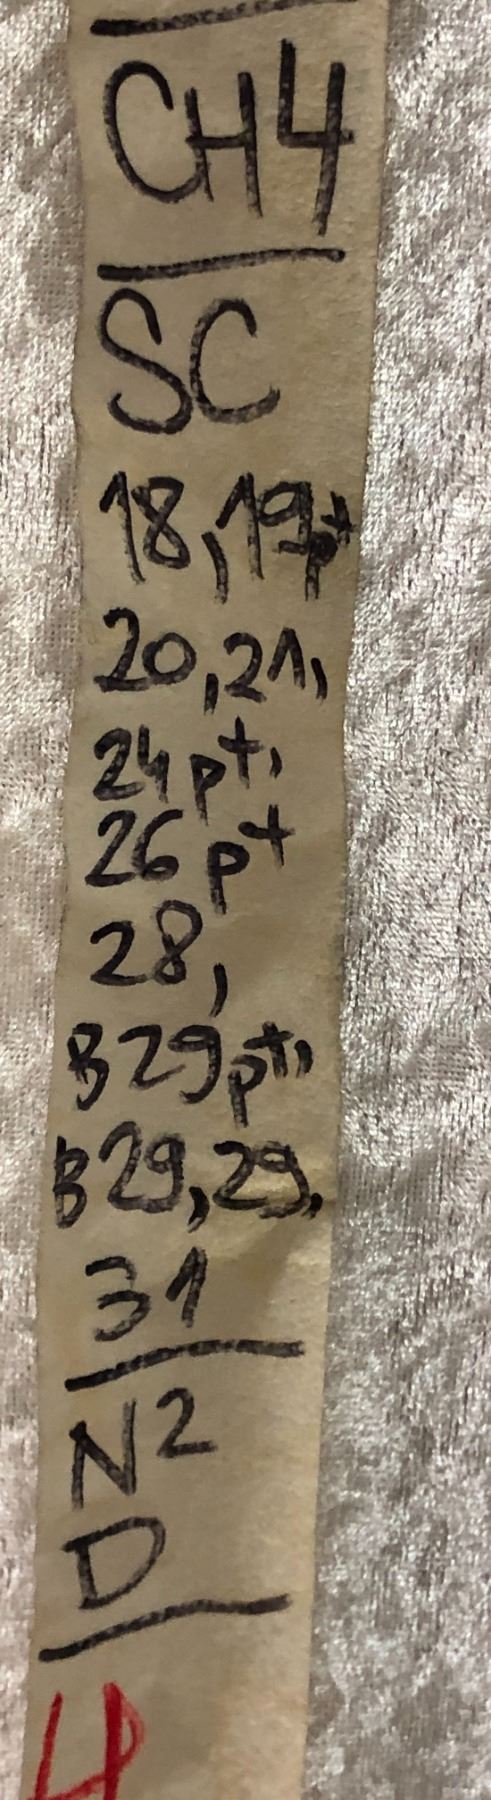 CH4
SC
18,19pt
20,21,
24pt,
26pt
28,
B29pt,
B29,29,
31
N2
D